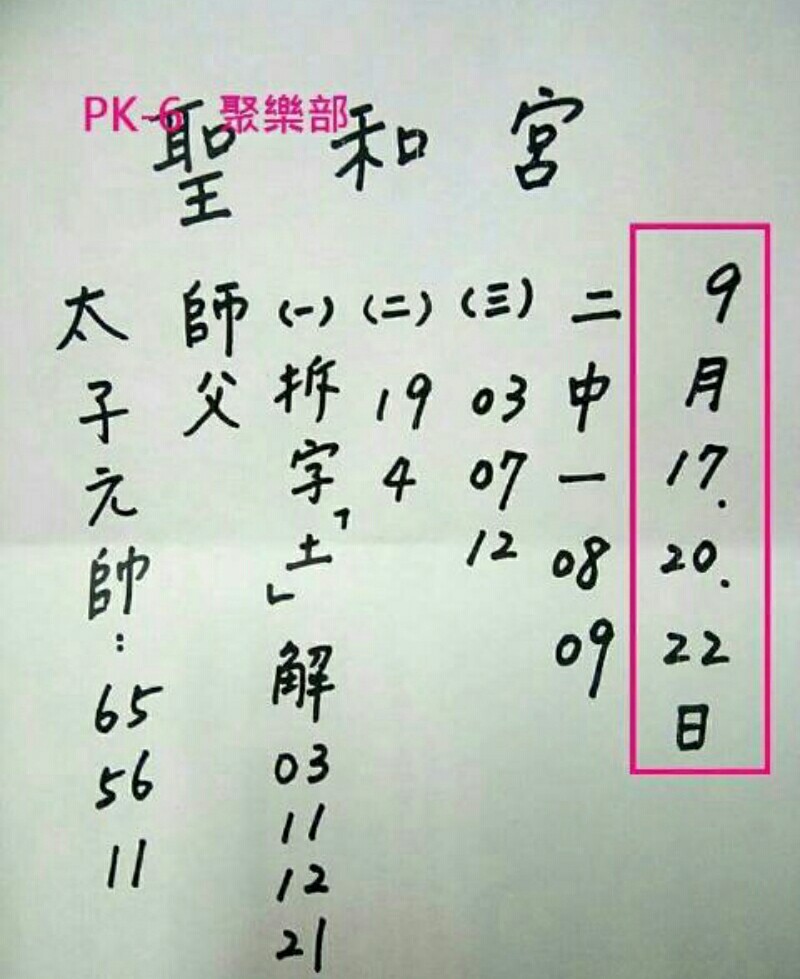 PK-6 聚樂部
聖和宮
9月17.20.22日
二中一 08 09
(三) 03 07 12
(二) 19 4
(一) 拆字「土」解 03 11 12 21
師父
太子元帥：65 56 11